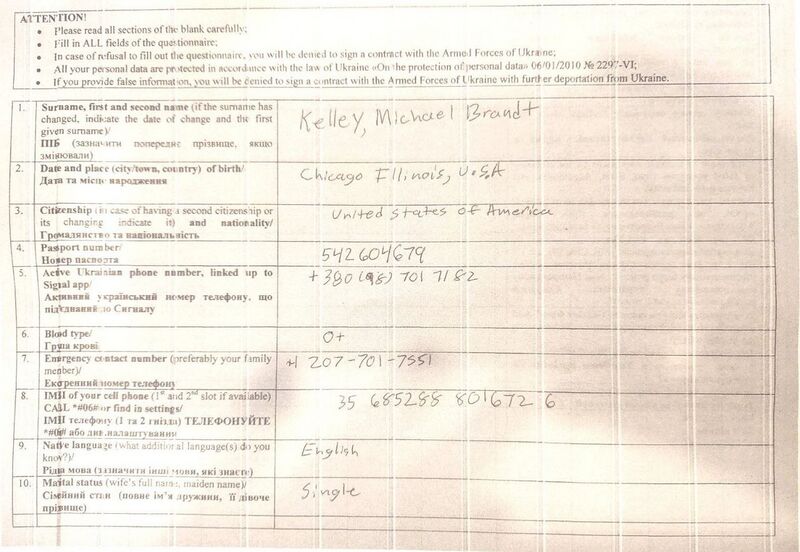 ATTENTION!
• Please read all sections of the blank carefully;
• Fill in ALL fields of the questionnaire;
• In case of refusal to fill out the questionnaire, you will be denied to sign a contract with the Armed Forces of Ukraine;
• All your personal data are protected in accordance with the law of Ukraine «On the protection of personal data» 06/01/2010 № 2297-VI;
• If you provide false information, you will be denied to sign a contract with the Armed Forces of Ukraine with further deportation from Ukraine.
1. Surname, first and second name (if the surname has
changed, indicate the date of change and the first
given surname)/
ПІБ (зазначити попереднє прізвище, якщо
змінювали)
Kelley, Michael Brandt
2. Date and place (city/town, country) of birth/
Дата та місце народження
Chicago Illinois, U.S.A
3. Citizenship (in case of having a second citizenship or
its changing indicate it) and nationality/
Громадянство та національність
United States of America
4. Passport number/
Номер паспорта
542604679
5. Active Ukrainian phone number, linked up to
Signal app/
Активний український номер телефону, що
під'єднаний до Сигналу
+380 (98) 701 7182
6. Blood type/
Група крові
O+
7. Emergency contact number (preferably your family
member)/
Екстренний номер телефону
+1 207-701-7551
8. IMEI of your cell phone (1st and 2nd slot if available)
CALL *#06# or find in settings/
ІМЕІ телефону (1 та 2 гнізда) ТЕЛЕФОНУЙТЕ
*#06# або див.налаштування
35 685288 801672 6
9. Native language (what additional language(s) do you
know?)/
Рідна мова (зазначити інші мови, які знаєте)
English
10. Marital status (wife's full name, maiden name)/
Сімейний стан (повне ім'я дружини, її дівоче
прізвище)
Single